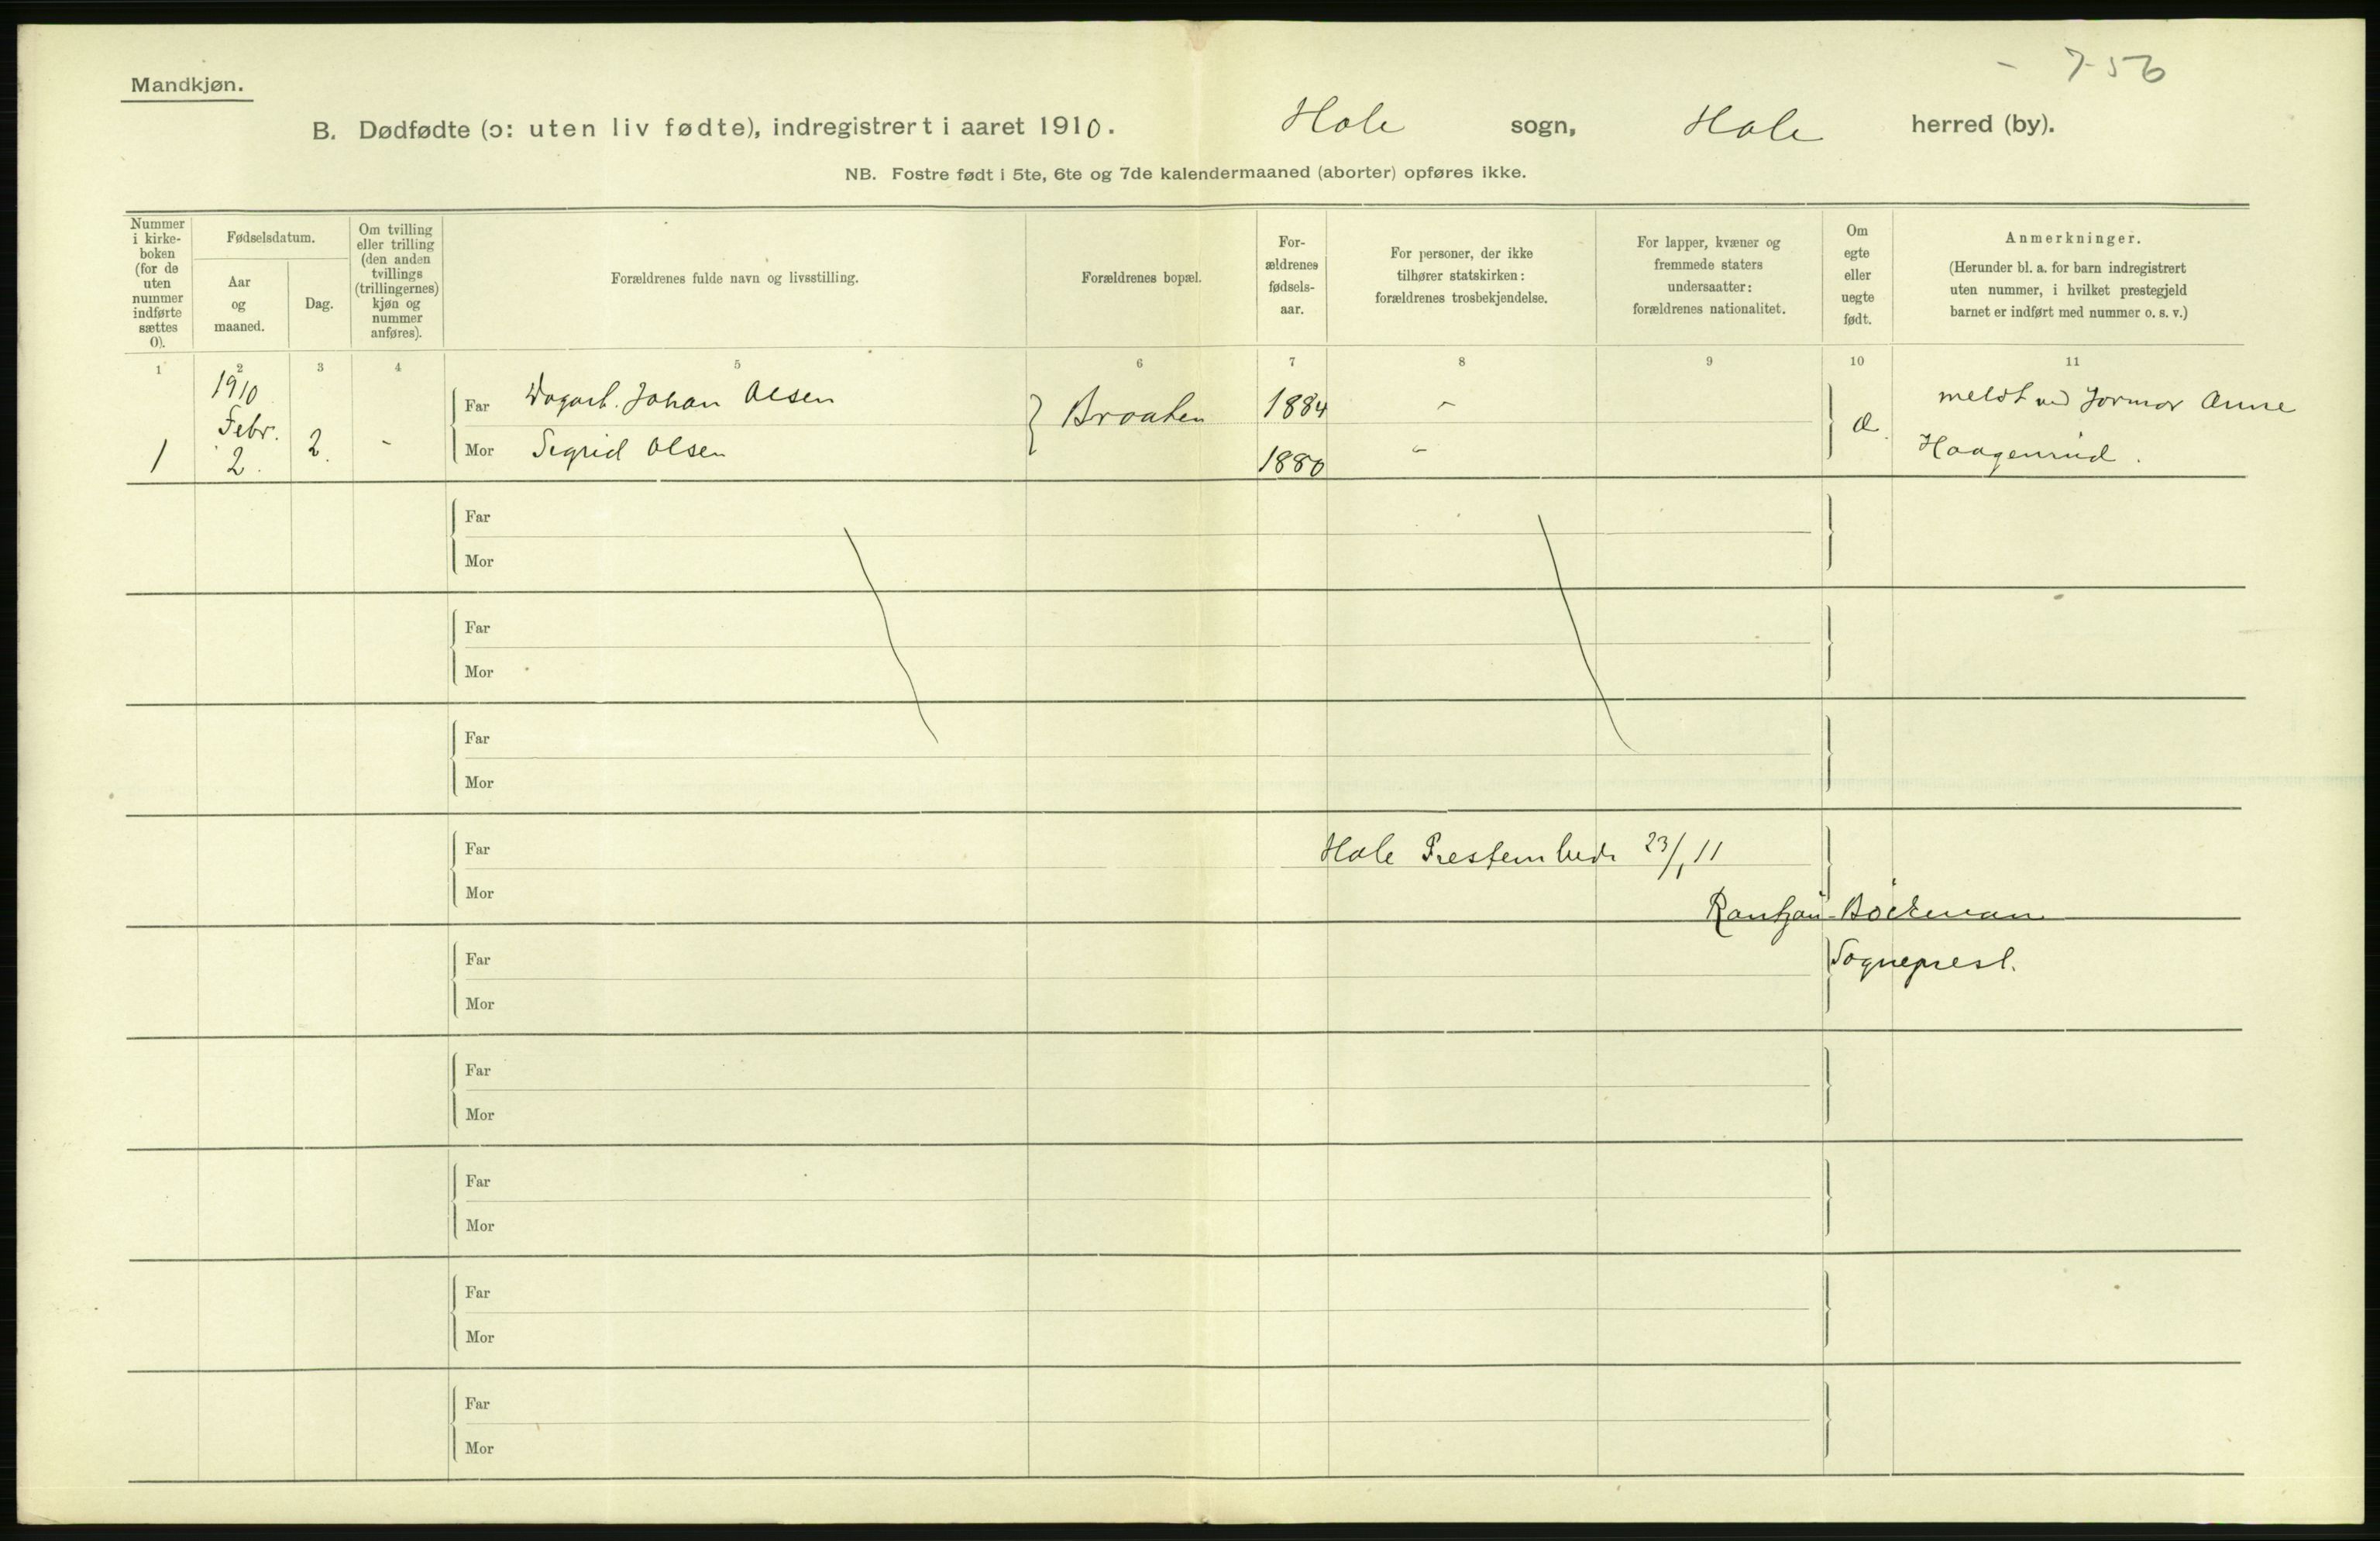 - 7-56
Mandkjøn.
B. Dødfødte (ɔ: uten liv fødte), indregistrert i aaret 1910. Hole sogn, Hole herred (by).
NB. Fostre født i 5te, 6te og 7de kalendermaaned (aborter) opføres ikke.
Nummer
i kirke-
boken
(for de
uten
nummer
indførte
sættes
0).
Fødselsdatum.
Aar
og
maaned.
Dag.
Om tvilling
eller trilling
(den anden
tvillings
(trillingernes)
kjøn og
nummer
anføres).
Forældrenes fulde navn og livsstilling.
Forældrenes bopæl.
For-
ældrenes
fødsels-
aar.
For personer, der ikke
tilhører statskirken:
forældrenes trosbekjendelse.
For lapper, kvæner og
fremmede staters
undersaatter:
forældrenes nationalitet.
Om
egte
eller
uegte
født.
Anmerkninger.
(Herunder bl. a. for barn indregistrert
uten nummer, i hvilket prestegjeld
barnet er indført med nummer o. s. v.)
1 2 3 4 5 6 7 8 9 10 11
1910
Febr.
1 2. 2. -
Far Dagarb. Johan Olsen Braaten 1884 -
Mor Sigrid Olsen 1880 -
æ.
meldt ved Jormor Anne
Haagenrud.
Far
Mor
Far
Mor
Far
Mor
Far Hole 23/1 11
Mor Rantzau-Böckman
Far Sogneprest.
Mor
Far
Mor
Far
Mor
Far
Mor
Far
Mor